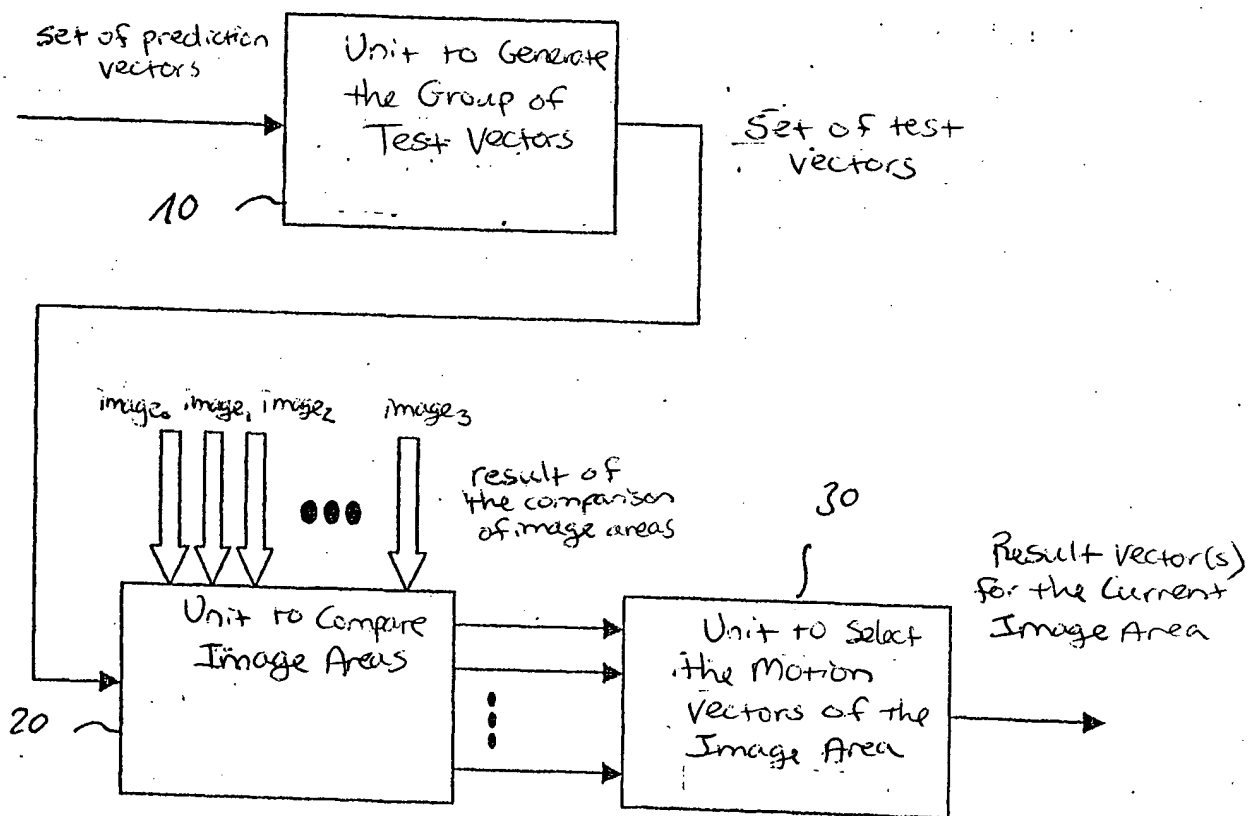 set of prediction
vectors
Unit to Generate
the Group of
Test Vectors
10
Set of test
vectors
image₀ image₁ image₂ image₃
result of
the comparison
of image areas
30
Unit to Compare
Image Areas
20
Unit to Select
the Motion
Vectors of the
Image Area
Result vector(s)
for the Current
Image Area